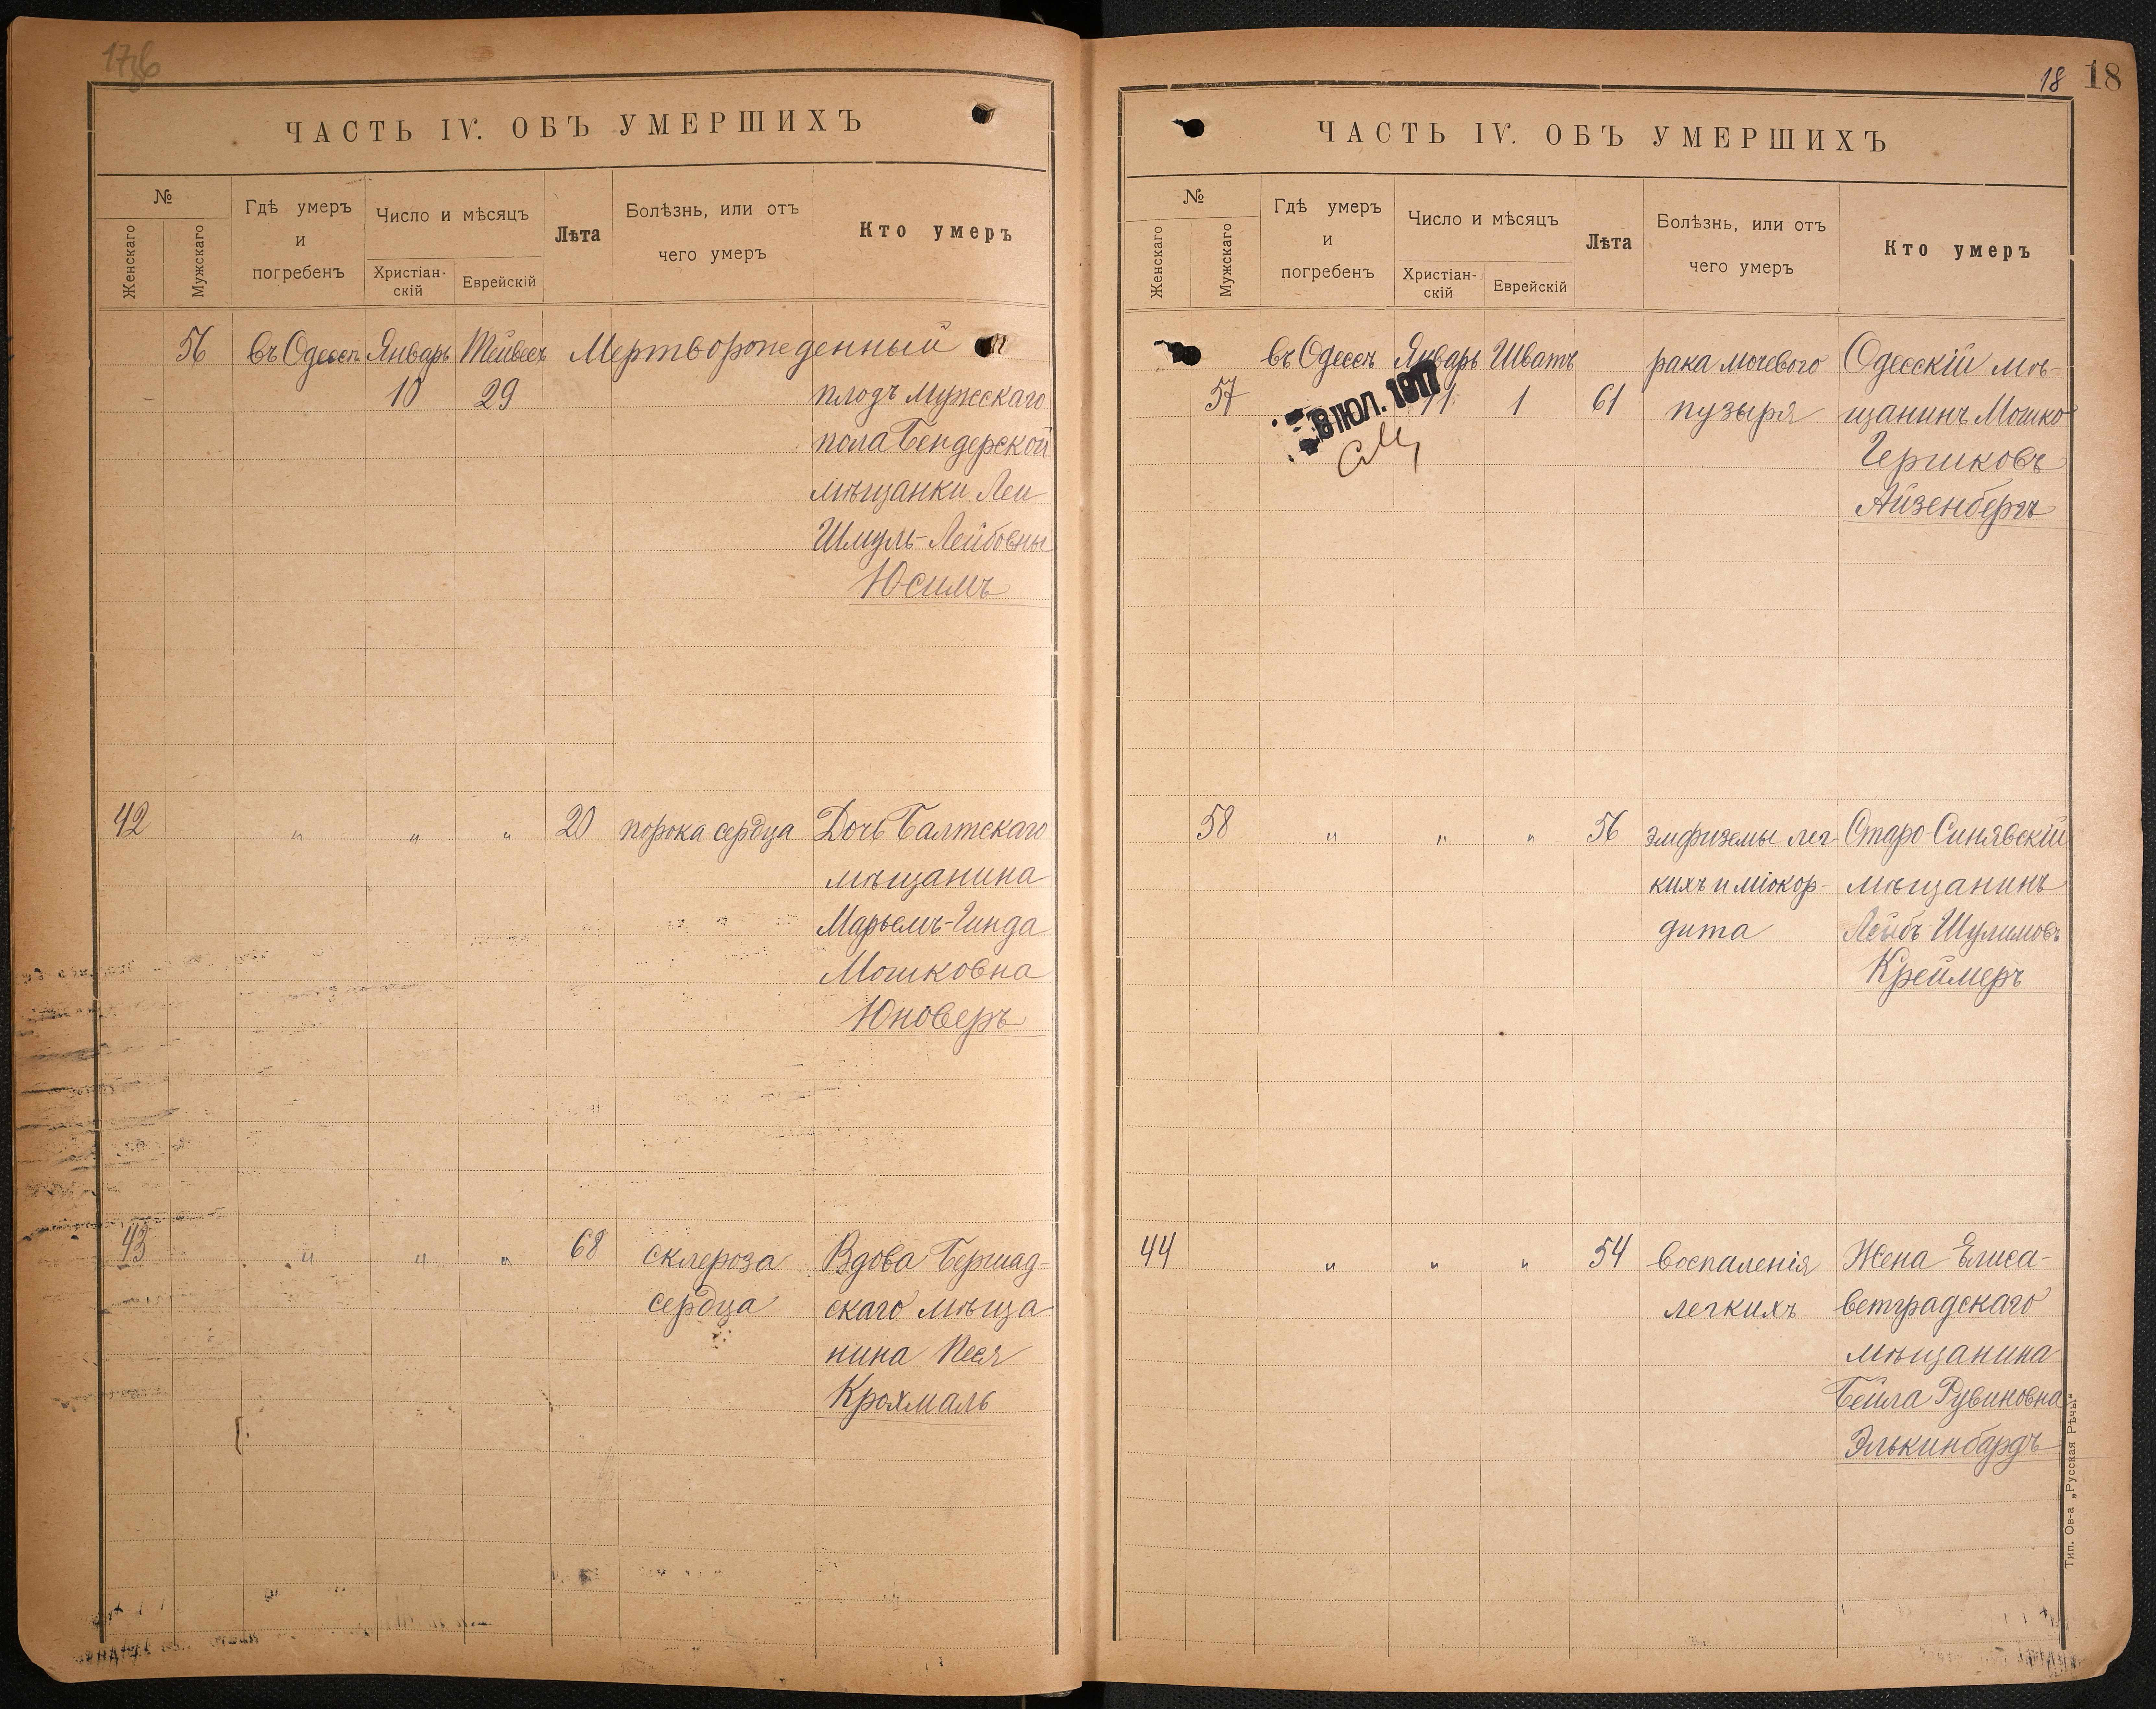 17об
ЧАСТЬ IV. ОБЪ УМЕРШИХЪ
№
Женскаго
Мужскаго
Гдѣ умеръ
и
погребенъ
Число и мѣсяцъ
Христіан-
скій
Еврейскій
Лѣта
Болѣзнь, или отъ
чего умеръ
Кто умеръ
56 въ Одессѣ Январь Тейвесъ Мертворожденный
10 29 плодъ мужескаго
пола Бендерской
мѣщанки Леи
Шмуль-Лейбовны
Юсимъ
42 " " " 20 порока сердца Дочь Балтскаго
мѣщанина
Марьемъ-Гинда
Мошковна
Юноверъ
43 " " " 68 склероза Вдова Бершад-
сердца скаго мѣща
нина Песя
Крахмаль
18 18
ЧАСТЬ IV. ОБЪ УМЕРШИХЪ
№
Женскаго
Мужскаго
Гдѣ умеръ
и
погребенъ
Число и мѣсяцъ
Христіан-
скій
Еврейскій
Лѣта
Болѣзнь, или отъ
чего умеръ
Кто умеръ
въ Одессѣ Январь Шватъ рака мочевого Одесскій мѣ-
57 11 1 61 пузыря щанинъ Мошко
8 ІЮЛ. 1917
Гершковъ
Айзенбергъ
58 " " " 56 эмфиземы лег- Старо-Синявскій
кихъ и міокор- мѣщанинъ
дита Лейбъ Шулимовъ
Креймеръ
44 " " " 54 воспаленія Жена Елиса-
легкихъ ветградскаго
мѣщанина
Бейла Рувиновна
Элькинбардъ
Тип. Ов-а „Русская Рѣчь"